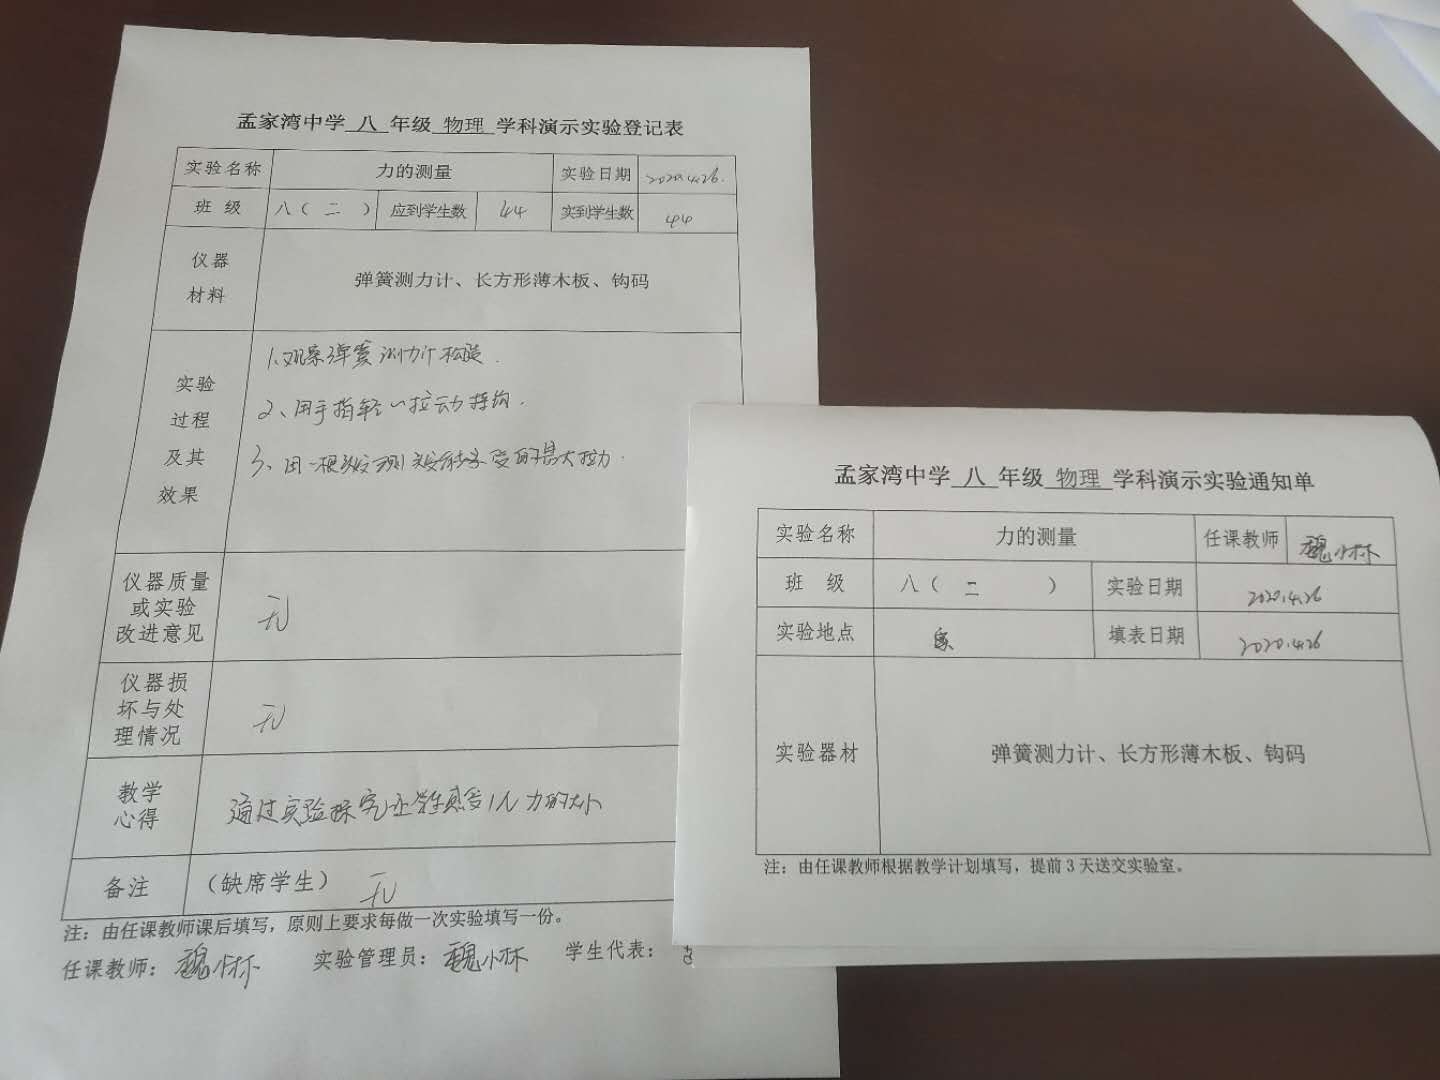 孟家湾中学 八 年级 物理 学科演示实验登记表
实验名称 力的测量 实验日期 2020.4.26.
班 级 八( 二 ) 应到学生数 44 实到学生数 44
仪器
材料
弹簧测力计、长方形薄木板、钩码
实验
过程
及其
效果
1、观察弹簧测力计构造.
2、用手指轻轻拉动挂钩.
3、用一根头发测头发能承受的最大拉力.
仪器质量
或实验
改进意见
无
仪器损
坏与处
理情况
无
教学
心得
通过实验探究让学生感受1N力的大小
备注 (缺席学生) 无
注：由任课教师课后填写，原则上要求每做一次实验填写一份。
任课教师：魏小林 实验管理员：魏小林 学生代表：
孟家湾中学 八 年级 物理 学科演示实验通知单
实验名称 力的测量 任课教师 魏小林
班 级 八( 二 ) 实验日期 2020.4.26
实验地点 填表日期 2020.4.26
实验器材 弹簧测力计、长方形薄木板、钩码
注：由任课教师根据教学计划填写，提前3天送交实验室。